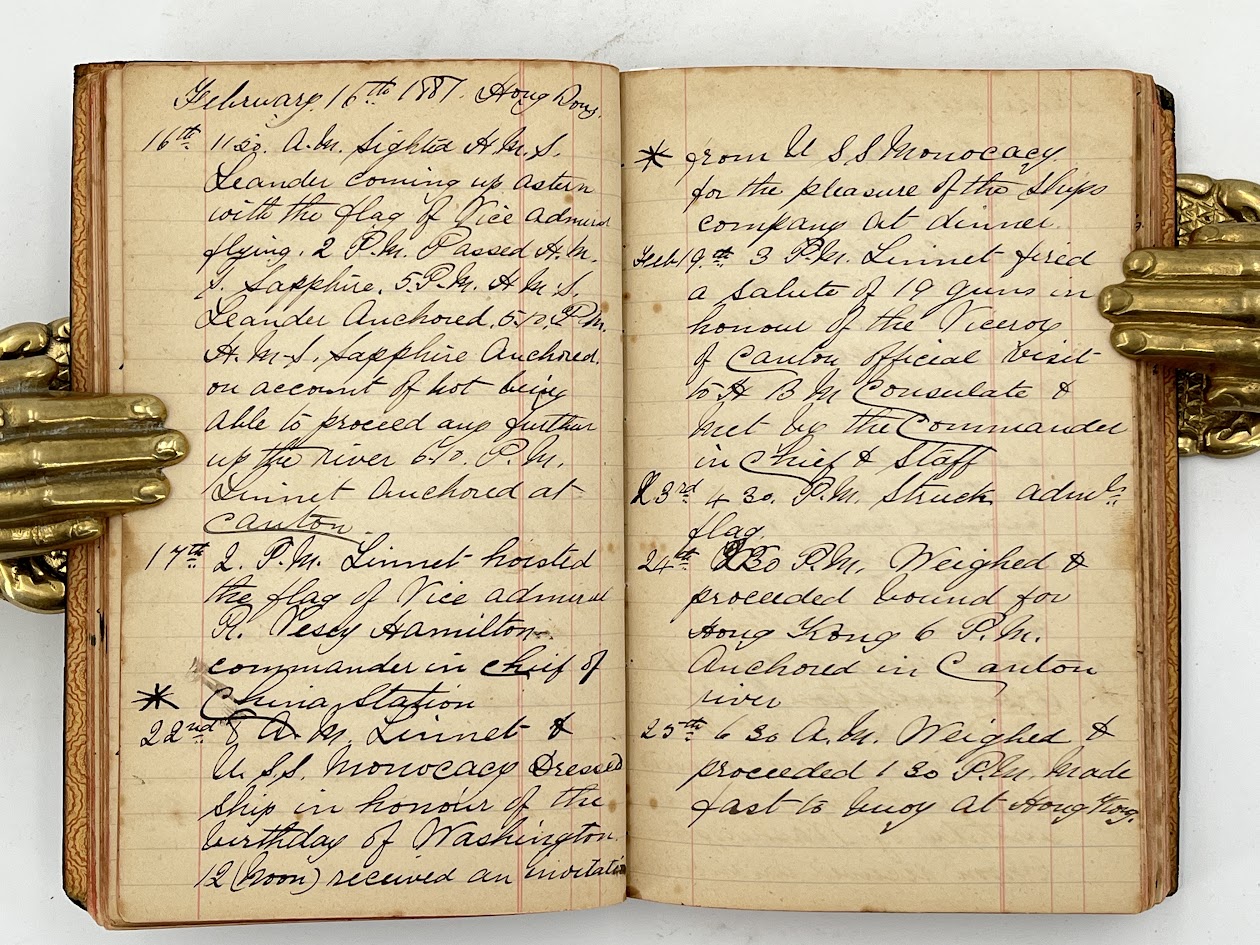 February 16th 1887. Hong Kong
16th 11 30. A.M. Sighted H.M.S.
Leander coming up astern
with the flag of Vice admiral
flying. 2 P.M. Passed H.M.
S. Sapphire. 5 P.M. H.M.S.
Leander Anchored. 5.10. P.M.
H.M.S. Sapphire Anchored.
on account of not being
able to proceed any further
up the river 6.10. P.M.
Linnet Anchored at
Canton.
17th 2. P.M. Linnet hoisted
the flag of Vice admiral
R. Vesey Hamilton.
commander in chief of
* China Station
22nd 8 A.M. Linnet &
U.S.S. Monocacy Dressed
ship in honour of the
birthday of Washington.
12 (Noon) received an invitation
* from U S.S Monocacy
for the pleasure of the Ships
company at dinner.
Feb 19th 3 P.M. Linnet fired
a salute of 19 guns in
honour of the Viceroy
of Canton official visit
to H B M Consulate &
met by the Commander
in Chief & Staff
23rd 4 30. P.M. Struck adm'ls
flag.
24th 2 30 P.M. Weighed &
proceeded bound for
Hong Kong 6 P.M.
Anchored in Canton
river
25th 6 30 A.M. Weighed &
proceeded 1 30 P.M. Made
fast to buoy at Hong Kong.